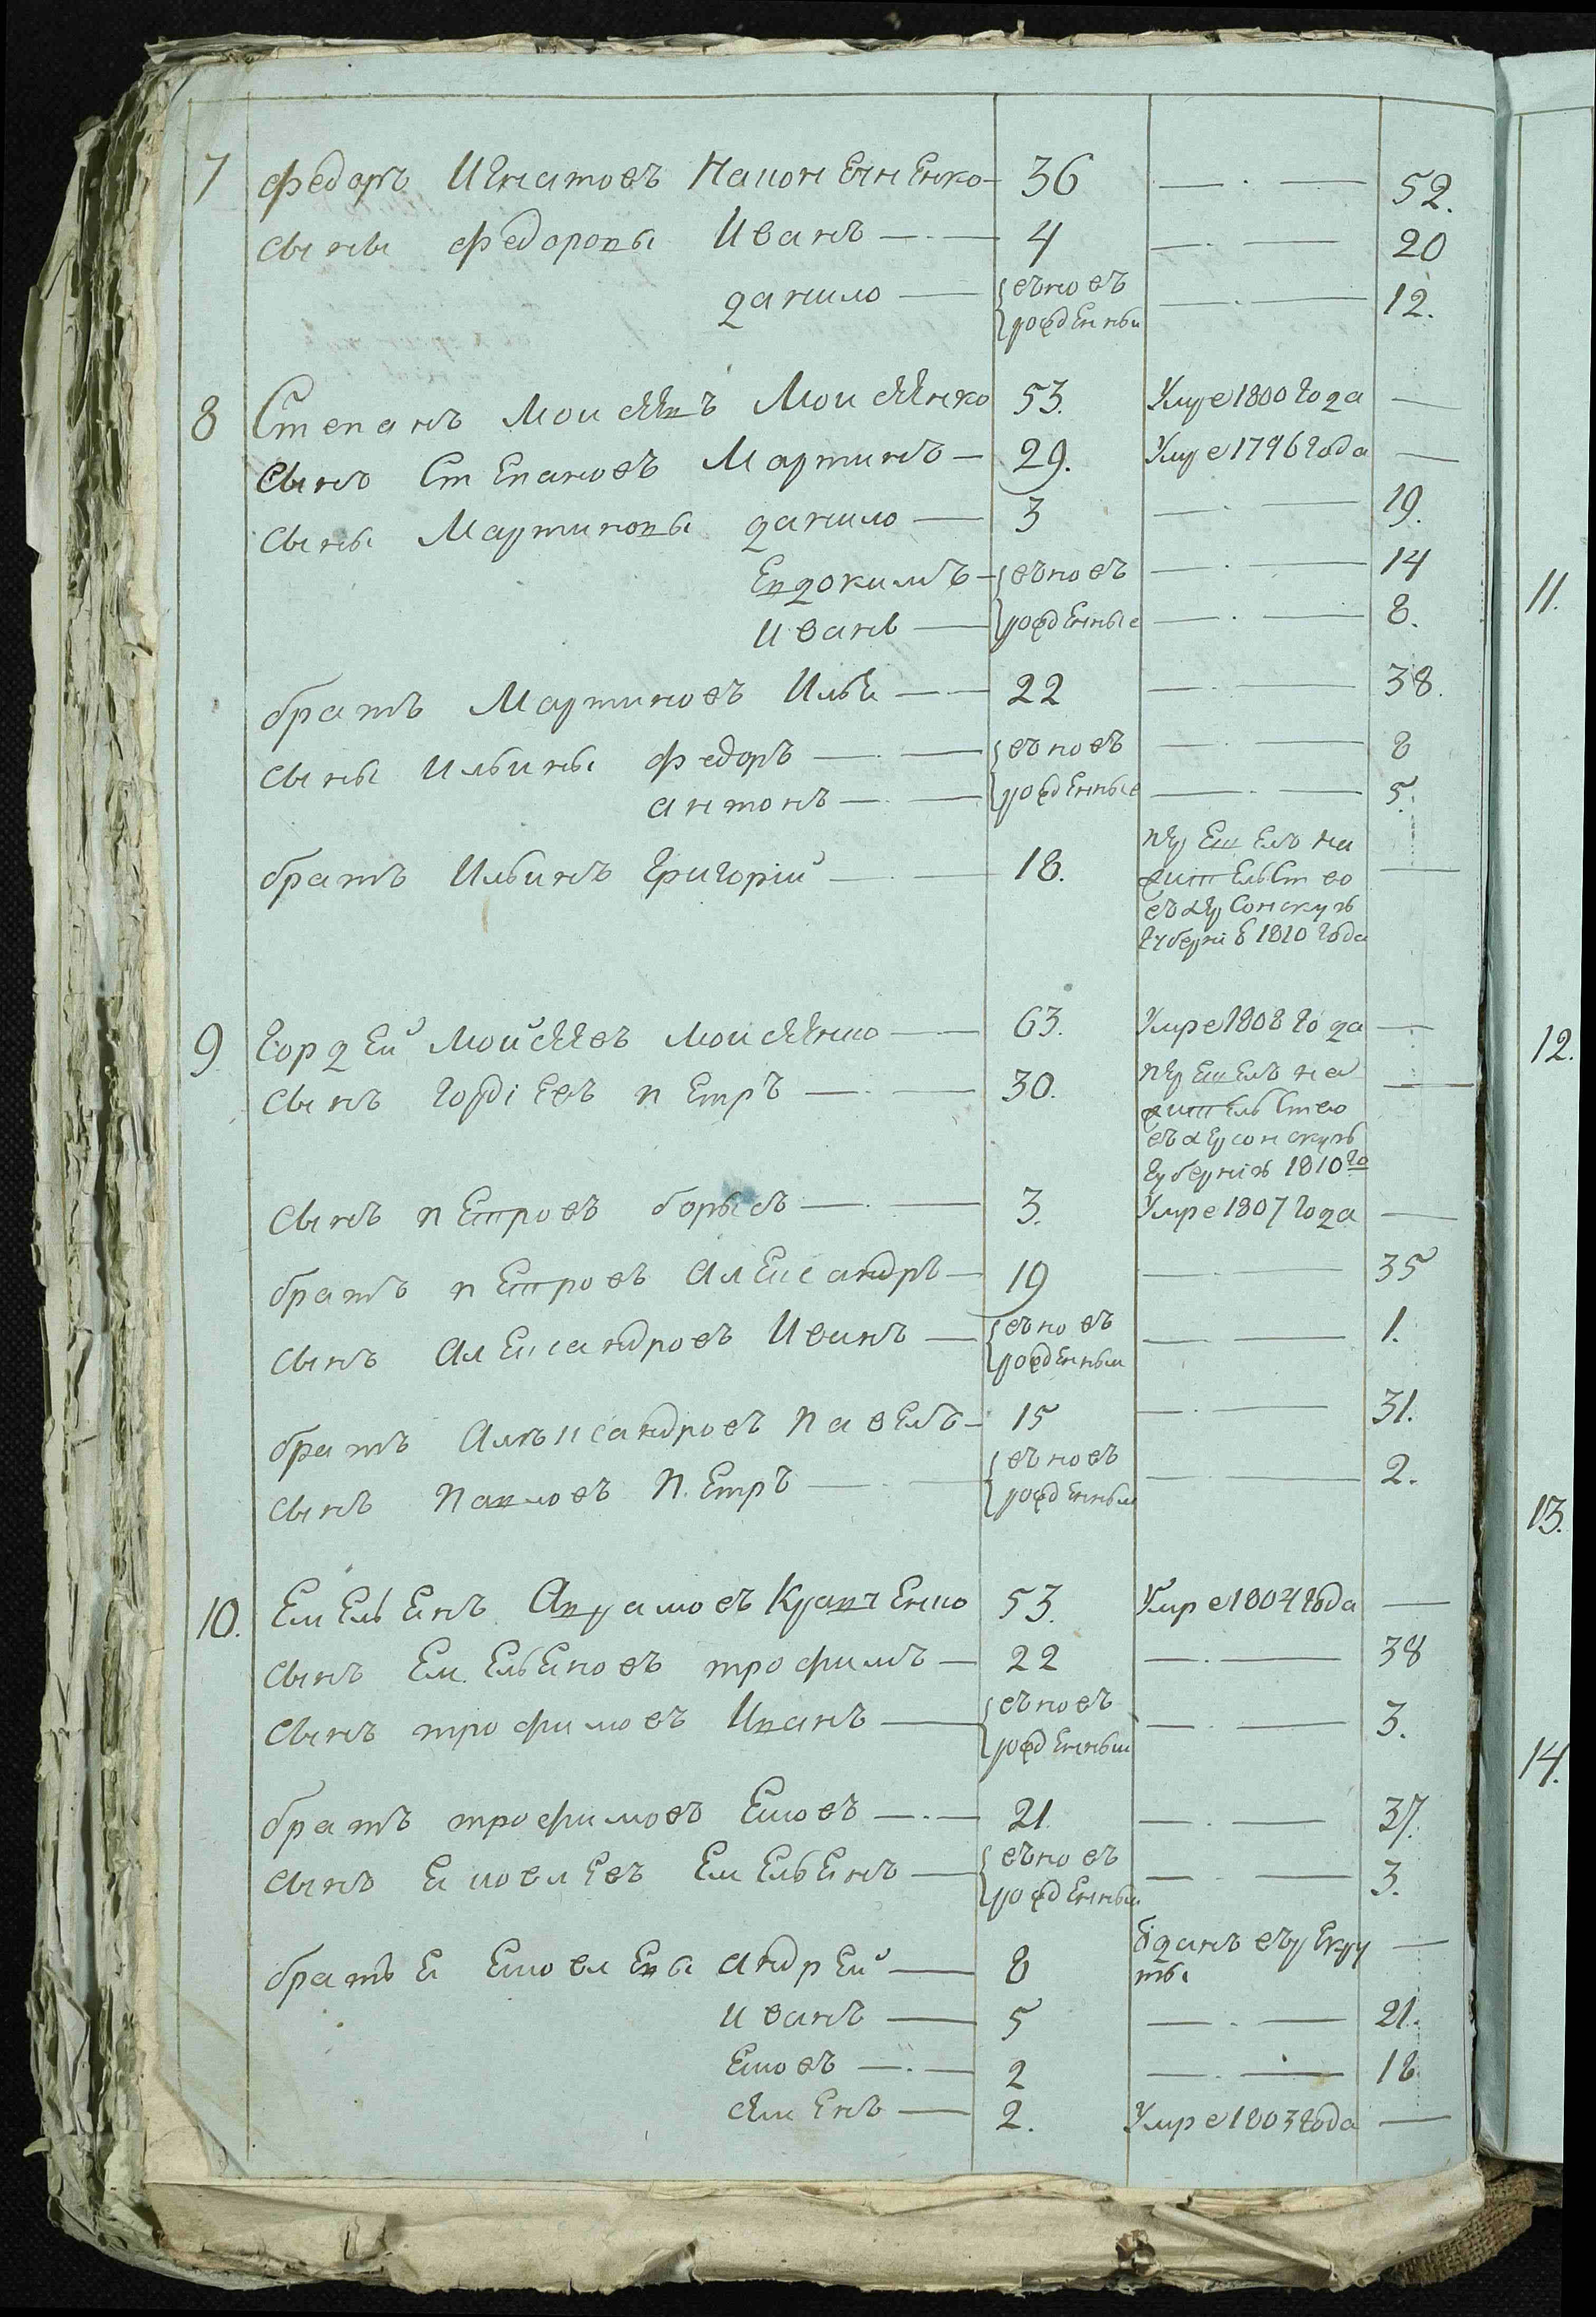 7 Федоръ Игнатовъ 36 — . — 52.
сыны Федоровы Иванъ — . — 4 — . — 20
данило — въновъ рожденный — . — 12.
8 Степанъ Моисеевъ Моисеенко 53. Умре 1800 года —
сынъ Степановъ Мартинъ — 29. Умре 1796 года —
сыны Мартиновы данило — 3 — . — 19.
Евдокимъ — въновъ — . — 14
иванъ — рожденные — . — 8.
братъ Мартиновъ Илья — . — 22 — . — 38.
сыны Ильины федоръ — . — въновъ — . — 8
антонъ — . — рожденные — . — 5.
братъ Ильинъ Григорій — . — 18. перешелъ на —
жительство
въ херсонскую
губернію 1810 года
9 Гордей Мойсеевъ Моисеенко — . — 63. Умре 1808 года —
сынъ гордіевъ петръ — . — 30. перешелъ на —
жительство
въ херсонскую
губернію 1810го
сынъ петровъ борысъ — . — 3. Умре 1807 года —
братъ петровъ Александръ — 19 — . — 35
сынъ Александровъ Иванъ — въновъ рожденный — . — 1.
братъ Александровъ павелъ — 15 — . — 31.
сынъ павловъ петръ — . — въновъ рожденный — 2.
10. Емельенъ Аврамовъ Кравченко 53. Умре 1804 года —
сынъ Емельеновъ трофимъ — 22 — . — 38
сынъ трофимовъ Иванъ — въновъ рожденный — . — 3.
братъ трофимовъ Яковъ — . — 21. — . — 37.
сынъ яковлевъ Емельенъ — въновъ рожденный — . — 3.
братья Яковлевы андрей — 8 отданъ въ рекру —
ты
иванъ — 5 — . — 21.
Яковъ — . — 2 — . — 18
семенъ — 2. Умре 1803 года —
11.
12.
13.
14.